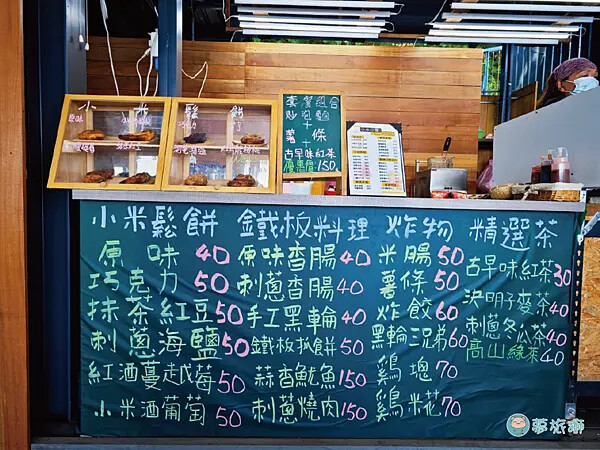 小米鬆餅
原味
巧克力
套餐組合
炒泡麵
+
薯條
+
古早味紅茶
優惠價150
小米鬆餅 鐵板料理 炸物 精選茶
原味 40
巧克力 50
抹茶紅豆 50
刺蔥海鹽 50
紅酒蔓越莓 50
小米酒葡萄 50
原味香腸 40
刺蔥香腸 40
手工黑輪 40
鐵板抓餅 50
蒜香魷魚 150
刺蔥燒肉 150
米腸 50
薯條 50
炸餃 60
黑輪三兄弟 60
雞塊 70
雞米花 70
古早味紅茶 30
決明子麥茶 40
刺蔥冬瓜茶 40
高山綠茶 40
夢旅獅